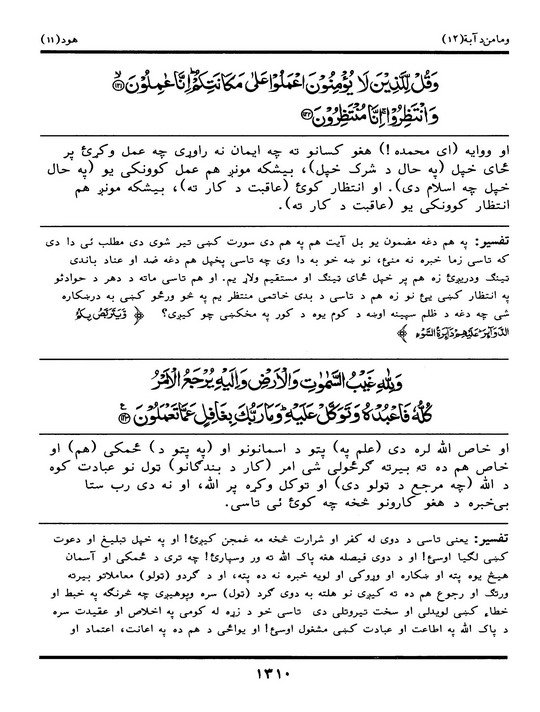 ومامن دآبة (۱۲) هود (۱۱)
وَقُلْ لِلَّذِينَ لَا يُؤْمِنُونَ اعْمَلُوا عَلٰى مَكَانَتِكُمْ إِنَّا عٰمِلُونَ ﴿۱۲۱﴾
وَانْتَظِرُوا إِنَّا مُنْتَظِرُونَ ﴿۱۲۲﴾
او ووايه (ای محمده!) هغو کسانو ته چه ايمان نه راوړی چه عمل وکړئ پر
ځای خپل (په حال د شرک خپل)، بيشکه مونږ هم عمل کوونکی يو (په حال
خپل چه اسلام دی). او انتظار کوئ (عاقبت د کار ته)، بيشکه مونږ هم
انتظار کوونکی يو (عاقبت د کار ته).
تفسير: په هم دغه مضمون يو بل آيت هم په هم دی سورت کښی تير شوی دی مطلب ئی دا دی
که تاسی زما خبره نه منئ، نو ښه خو په دا وی چه تاسی پخپل هم دغه ضد او عناد باندی
ټينګ ودريږئ زه هم پر خپل ځای ټينګ او مستقيم ولاړ يم. او هم تاسی ماته د دهر د حوادثو
په انتظار کښی يئ نو زه هم د تاسی د بدی خاتمی منتظر يم په څو ورځو کښی به درښکاره
شی چه دغه د ظلم سپينه اوښه د کوم يوه د کور په مخکښی چو کيږی؟ ﴿ وَيَتَرَبَّصُ بِكُمُ
الدَّوَآئِرَ عَلَيْهِمْ دَآئِرَةُ السَّوْءِ ﴾
وَلِلّٰهِ غَيْبُ السَّمٰوٰتِ وَالْأَرْضِ وَإِلَيْهِ يُرْجَعُ الْأَمْرُ
كُلُّهُ فَاعْبُدْهُ وَتَوَكَّلْ عَلَيْهِ وَمَا رَبُّكَ بِغَافِلٍ عَمَّا تَعْمَلُونَ ﴿۱۲۳﴾
او خاص الله لره دی (علم په) پتو د اسمانونو او (په پتو د) ځمکی (هم) او
خاص هم ده ته بيرته ګرځولی شی امر (کار د بندګانو) ټول نو عبادت کوه
د الله (چه مرجع د ټولو دی) او توکل وکړه پر الله، او نه دی رب ستا
بی‌خبره د هغو کارونو څخه چه کوئ ئی تاسی.
تفسير: يعنی تاسی د دوی له کفر او شرارت څخه مه غمجن کيږئ! او په خپل تبليغ او دعوت
کښی لګيا اوسئ! او د دوی فيصله هغه پاک الله ته ور وسپارئ! چه تری د ځمکی او آسمان
هيڅ يوه پته او ښکاره او وړوکی او لويه خبره نه ده پته، او د ګردو (ټولو) معاملاتو بيرته
ورتګ او رجوع هم ده ته کيږی نو هلته به دوی ګرد (ټول) سره وپوهيږی چه څرنګه په خبط او
خطاء کښی لويدلی او سخت تيروتلی دی تاسی خو د زړه له کومی په اخلاص او عقيدت سره
د پاک الله په اطاعت او عبادت کښی مشغول اوسئ! او يواځی د هم ده په اعانت، اعتماد او
۱۳۱۰